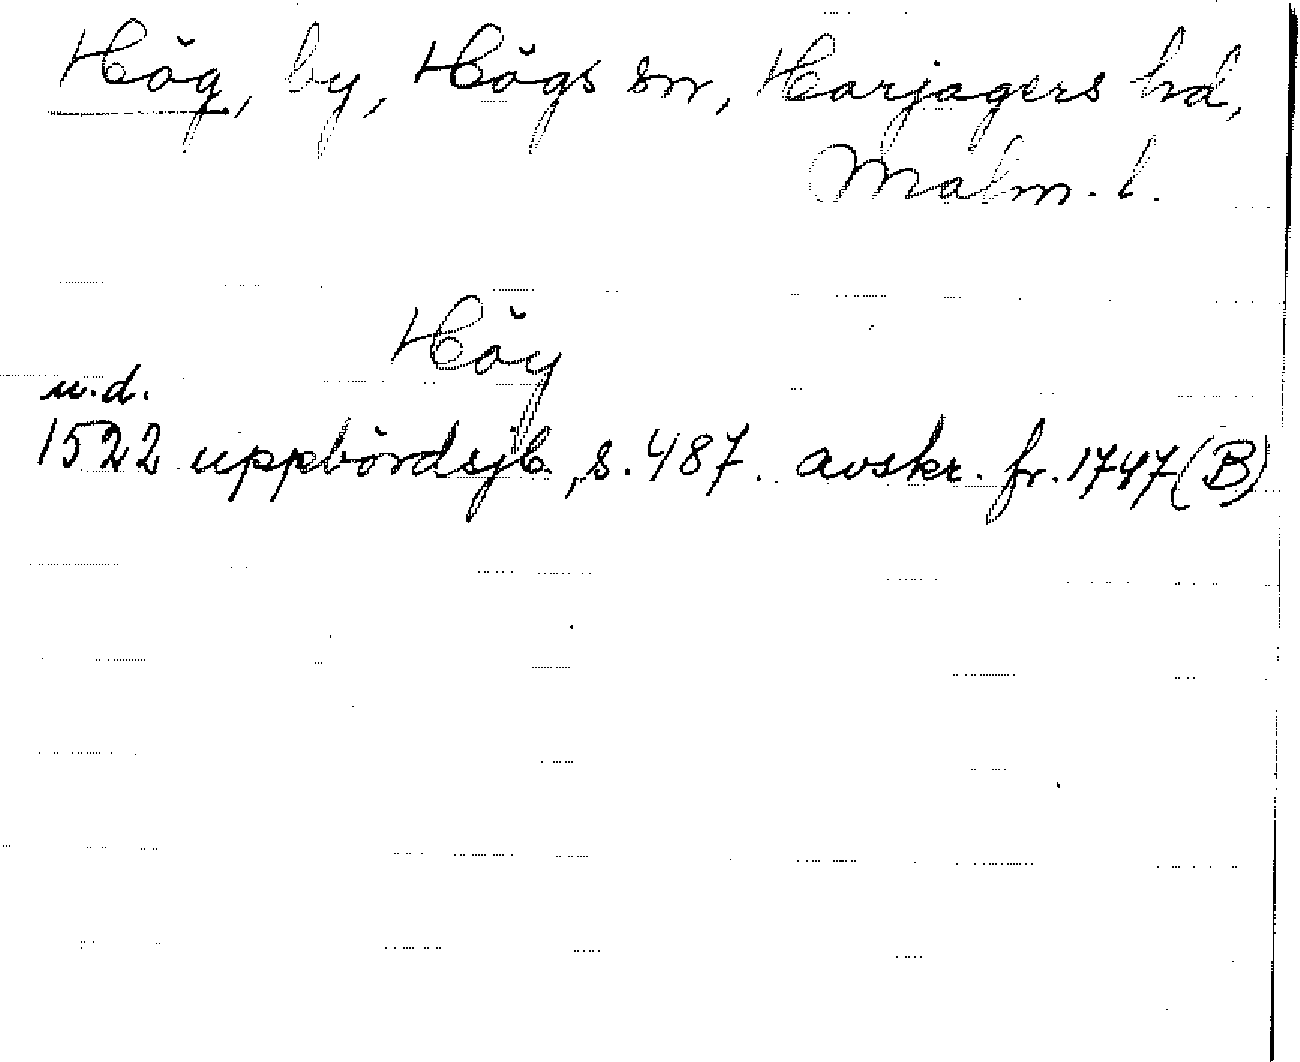 Hög, by, Högs sn, Harjagers hd,
Malm. l.
Höy
u.d.
1522 uppbördsjb, s. 487. avskr. fr. 1747 (B)